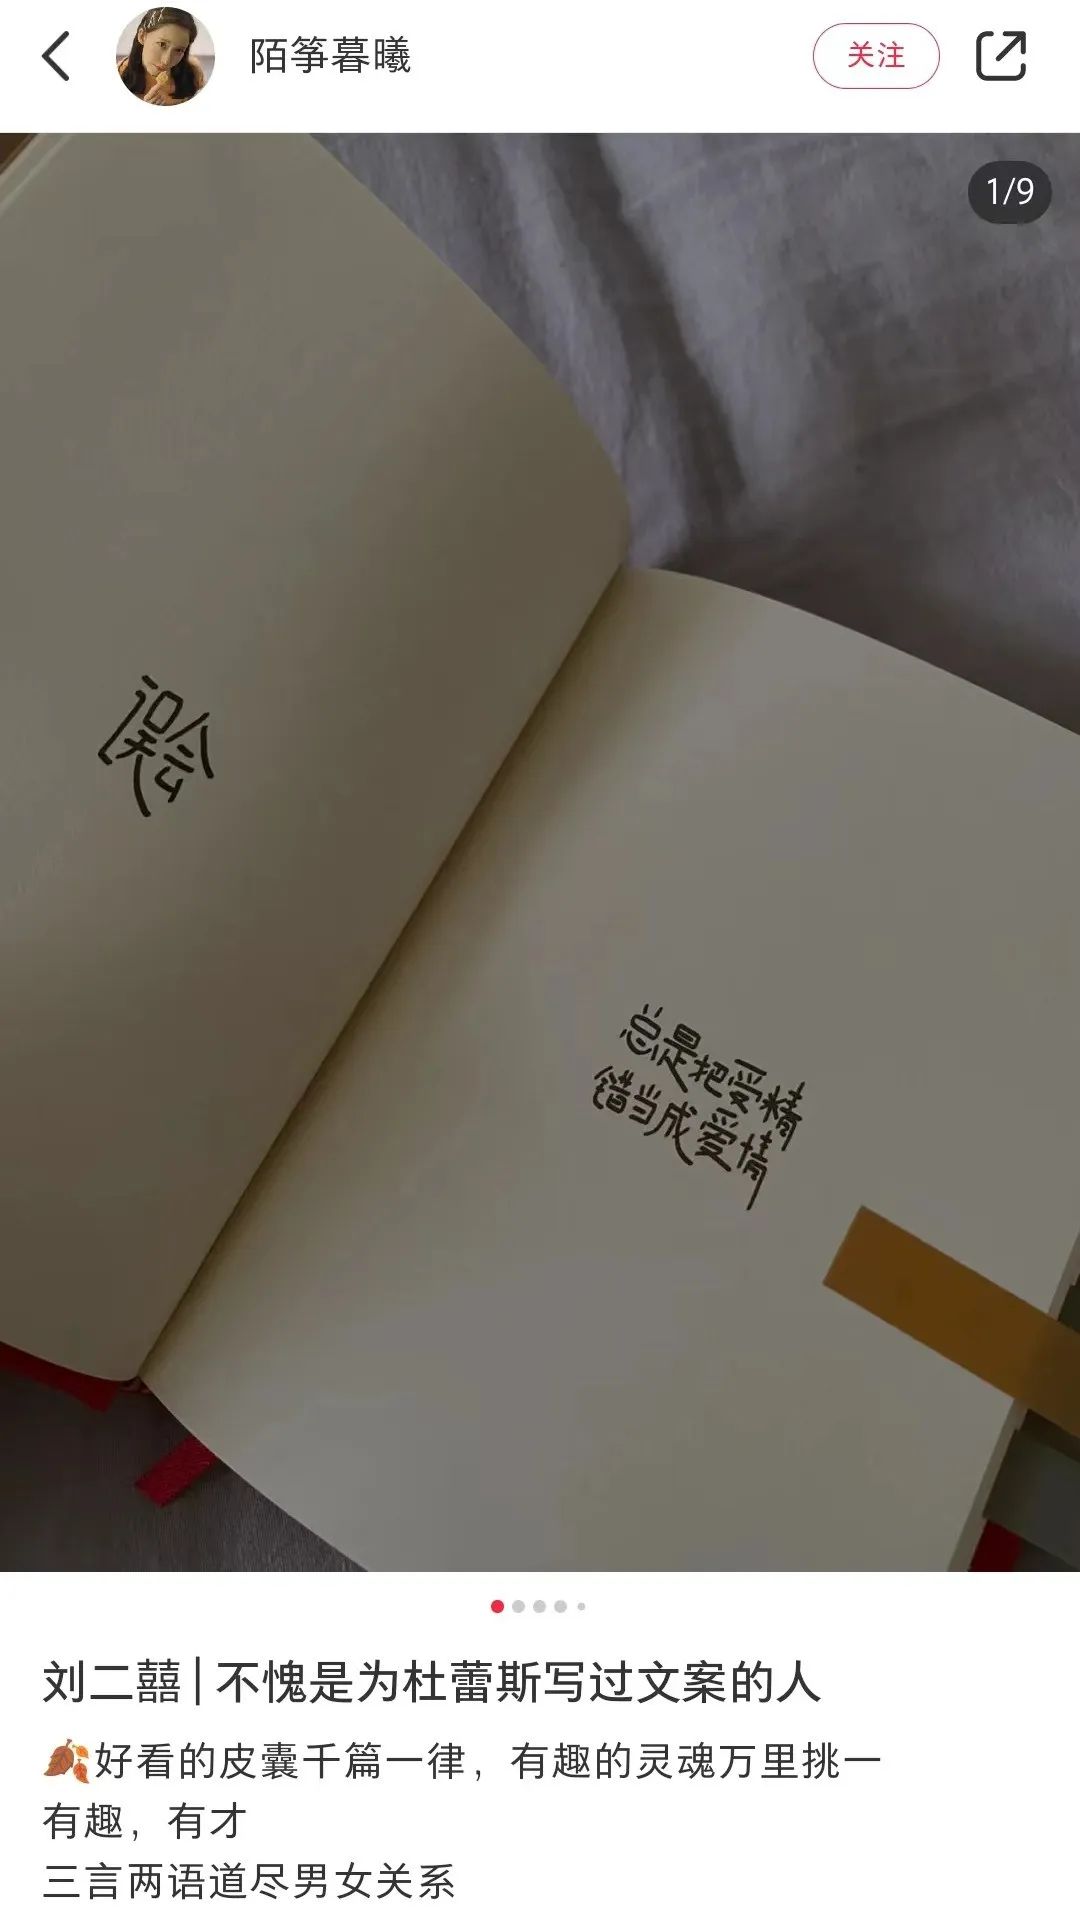 陌筝暮曦
关注
1/9
误会
总是把受精
错当成爱情
刘二囍|不愧是为杜蕾斯写过文案的人
🍂好看的皮囊千篇一律，有趣的灵魂万里挑一
有趣，有才
三言两语道尽男女关系